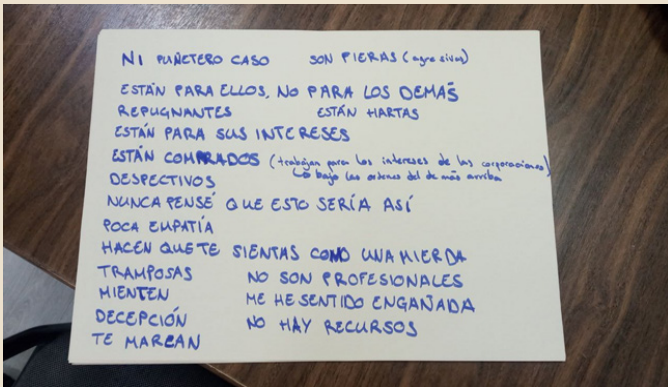 NI PUÑETERO CASO SON FIERAS (agresivas)
ESTÁN PARA ELLOS, NO PARA LOS DEMÁS
REPUGNANTES ESTÁN HARTAS
ESTÁN PARA SUS INTERESES
ESTÁN COMPRADOS (trabajan para los intereses de las corporaciones)
Lo bajo las ordenes del de más arriba
DESPECTIVOS
NUNCA PENSÉ QUE ESTO SERÍA ASÍ
POCA EMPATÍA
HACEN QUE TE SIENTAS COMO UNA MIERDA
TRAMPOSAS NO SON PROFESIONALES
MIENTEN ME HE SENTIDO ENGAÑADA
DECEPCIÓN NO HAY RECURSOS
TE MAREAN